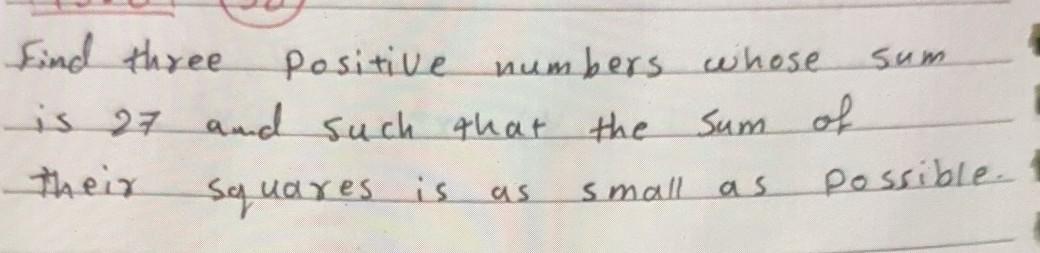 Find three positive numbers whose sum
is 27 and such that the sum of
their squares is as small as possible.